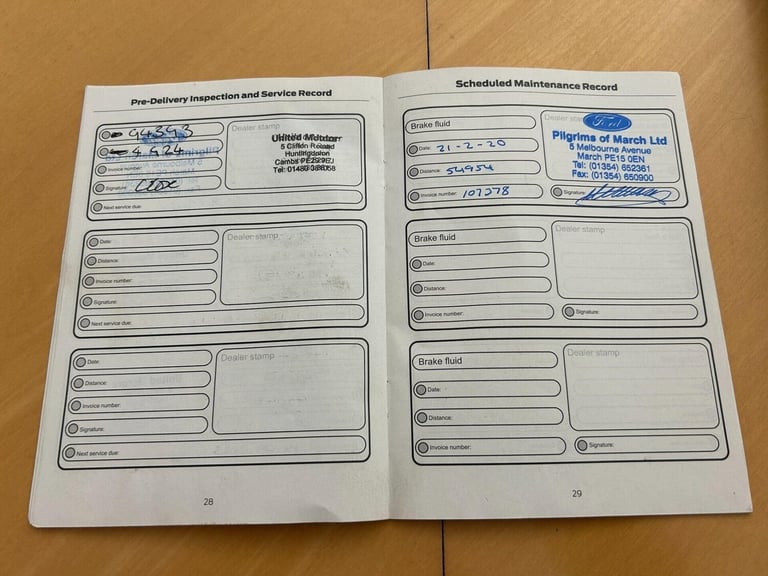 Pre-Delivery Inspection and Service Record
94393
4.9.24
Invoice number:
Signature:
Next service due:
Dealer stamp
United Motor
5 Clifton Road
Huntingdon
Cambs PE29 7EJ
Tel: 01480
Date:
Distance:
Invoice number:
Signature:
Next service due:
Dealer stamp
Date:
Distance:
Invoice number:
Signature:
Next service due:
Dealer stamp
28
Scheduled Maintenance Record
Brake fluid
Date: 21-2-20
Distance: 54954
Invoice number: 107278
Dealer stamp
Ford
Pilgrims of March Ltd
5 Melbourne Avenue
March PE15 0EN
Tel: (01354) 652361
Fax: (01354) 650900
Signature:
Brake fluid
Date:
Distance:
Invoice number:
Dealer stamp
Signature:
Brake fluid
Date:
Distance:
Invoice number:
Dealer stamp
Signature:
29